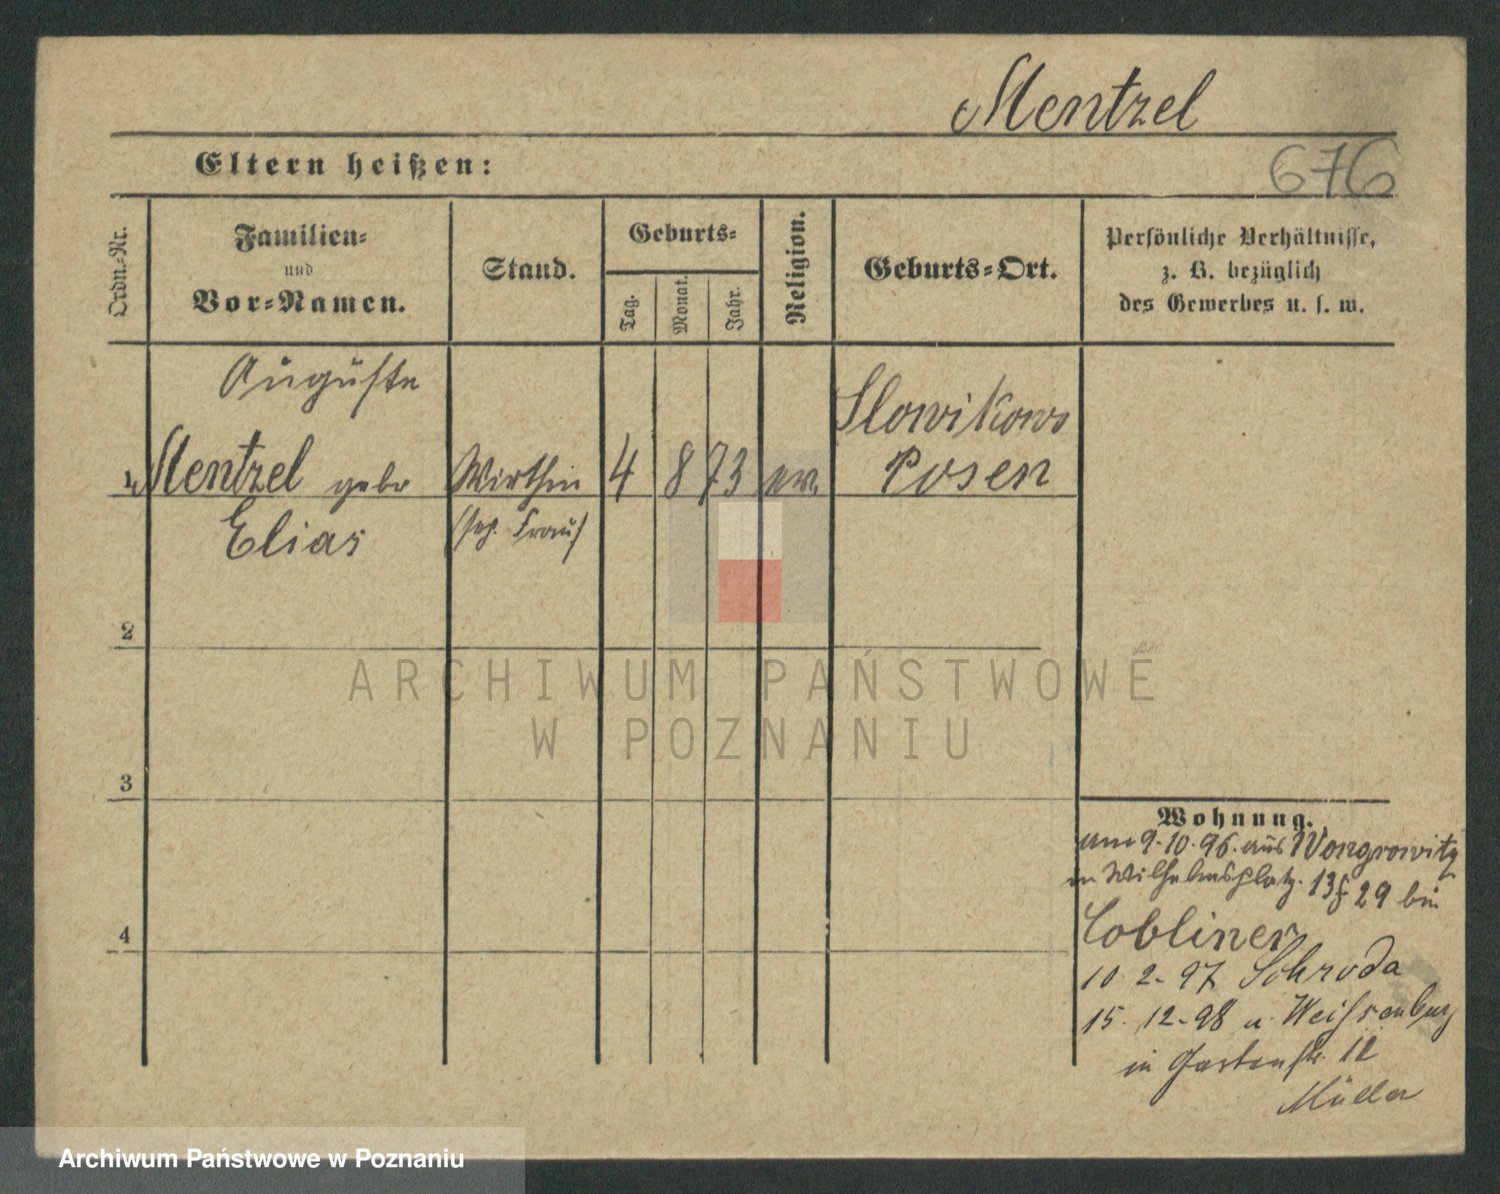 Mentzel
Eltern heißen:
676
Ordn.-Nr.
Familien-
und
Vor-Namen.
Stand.
Geburts-
Tag.
Monat.
Jahr.
Religion.
Geburts-Ort.
Persönliche Verhältnisse,
z. B. bezüglich
des Gewerbes u. s. w.
Auguste
1. Mentzel gebr Wirthin 4 8 73 ev. Slowikowo
Posen
Elias (sep. Frau)
2
3
4
ARCHIWUM PAŃSTWOWE
W POZNANIU
Wohnung.
am 9.10.96. aus Wongrowitz
in Wilhelmsplatz. 13 29 bei
Cobliner
10. 2. 97 Schroda
15. 12. 98 u. Weissenburg
in Gartenstr. 12
Müller
Archiwum Państwowe w Poznaniu